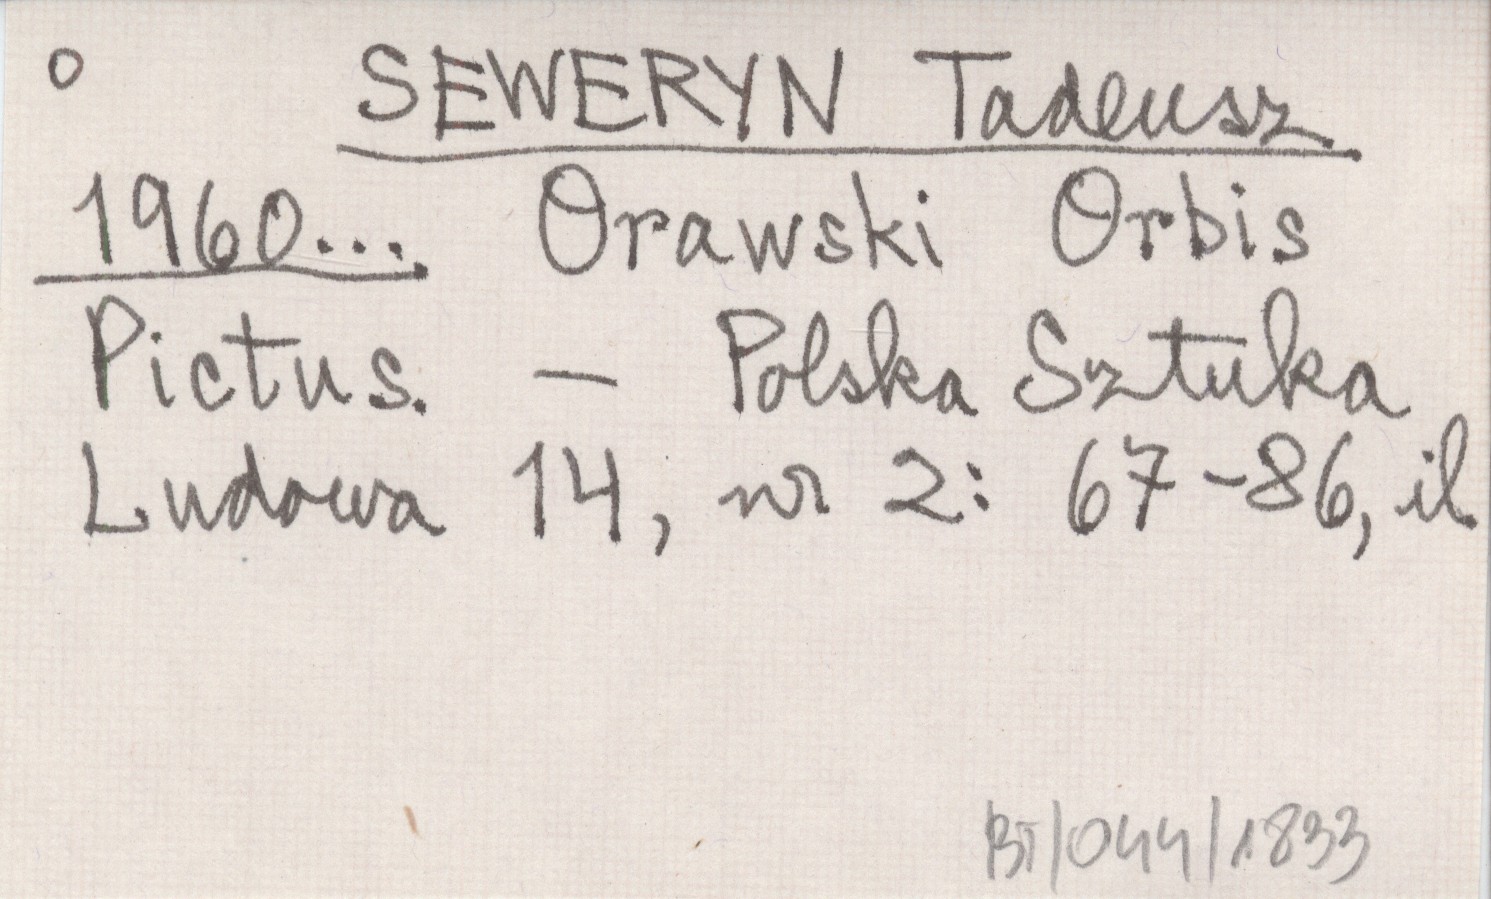 o SEWERYN Tadeusz
1960... Orawski Orbis
Pictus. - Polska Sztuka
Ludowa 14, nr 2: 67-86, il.
BT/044/1833